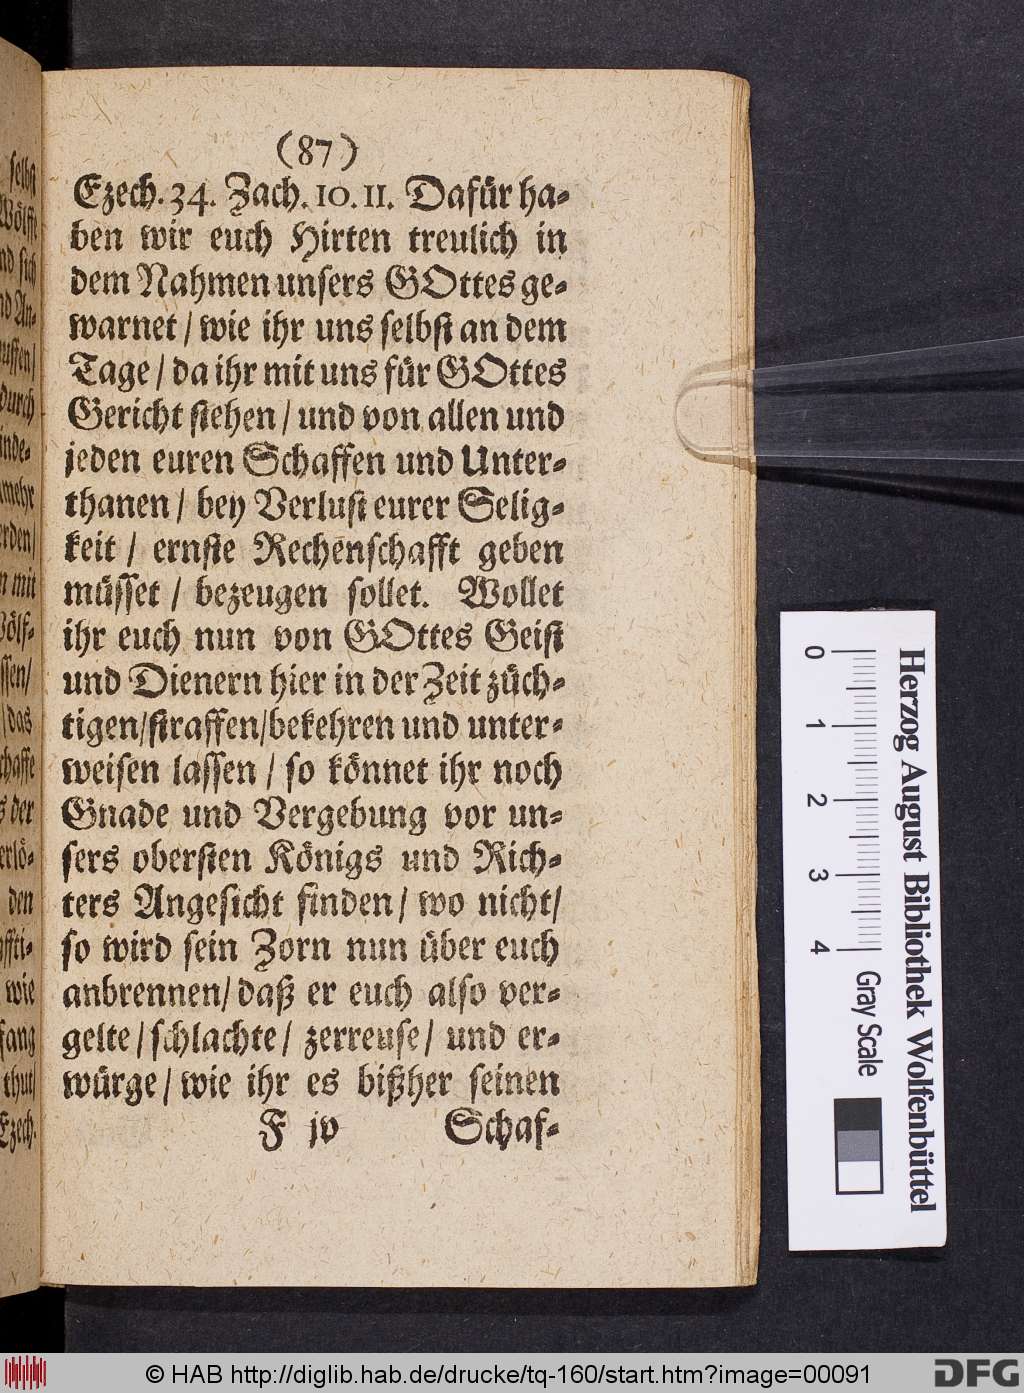 (87)
Ezech. 34. Zach. 10. 11. Dafür ha-
ben wir euch Hirten treulich in
dem Nahmen unsers GOttes ge-
warnet / wie ihr uns selbst an dem
Tage / da ihr mit uns für GOttes
Gericht stehen / und von allen und
jeden euren Schaffen und Unter-
thanen / bey Verlust eurer Selig-
keit / ernste Rechenschafft geben
müsset / bezeugen sollet. Wollet
ihr euch nun von GOttes Geist
und Dienern hier in der Zeit züch-
tigen/straffen/bekehren und unter-
weisen lassen / so könnet ihr noch
Gnade und Vergebung vor un-
sers obersten Königs und Rich-
ters Angesicht finden / wo nicht/
so wird sein Zorn nun über euch
anbrennen/ daß er euch also ver-
gelte / schlachte / zerreuse / und er-
würge / wie ihr es bißher seinen
F iv Schaf-
selbst
Wölffe
nd sich
nd An-
uffen/
durch
inde-
mehr
rden/
n mit
Wölf-
ssen/
/ das
chaffe
s der
erlö-
den
affti-
wie
fang
thut/
Ezech.
0 1 2 3 4 Gray Scale
Herzog August Bibliothek Wolfenbüttel
© HAB http://diglib.hab.de/drucke/tq-160/start.htm?image=00091
DFG